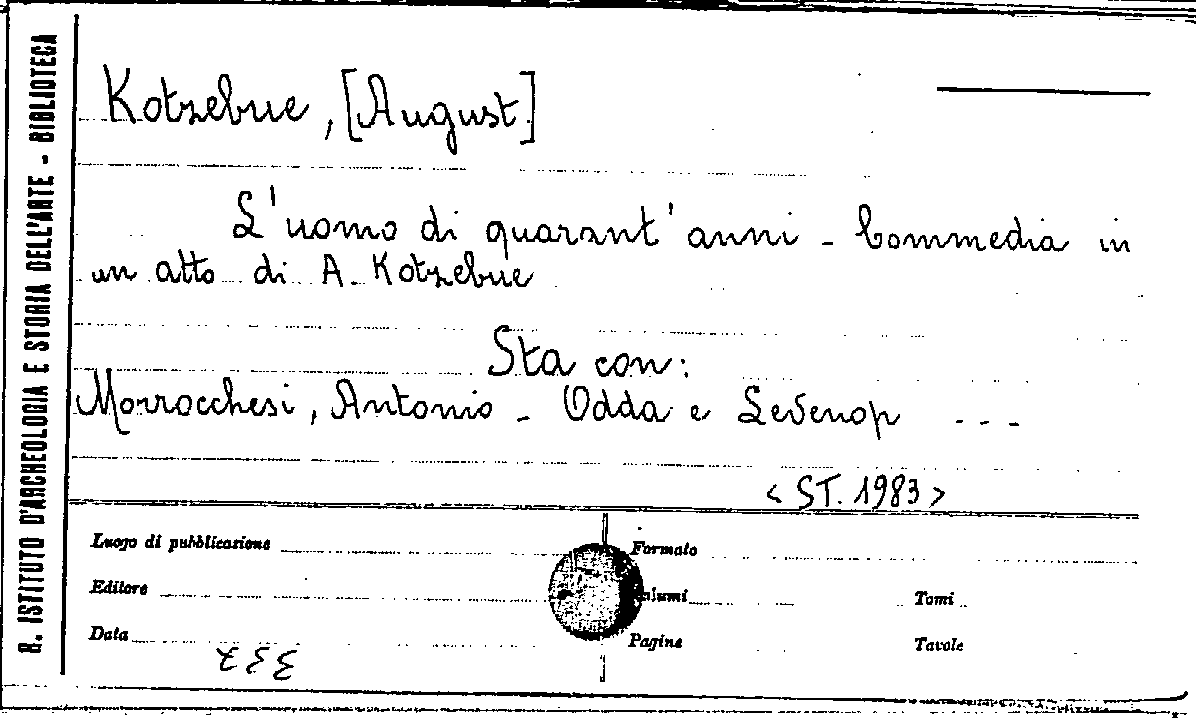 R. ISTITUTO D'ARCHEOLOGIA E STORIA DELL'ARTE - BIBLIOTECA
Kotzebue, [August]
L'uomo di quarant'anni - Commedia in
un atto di A. Kotzebue
Sta con:
Morrocchesi, Antonio - Odda e Sevenop ---
< ST. 1983 >
Luogo di pubblicazione
Formato
Editore
Tomi
Data
Pagine
Tavole